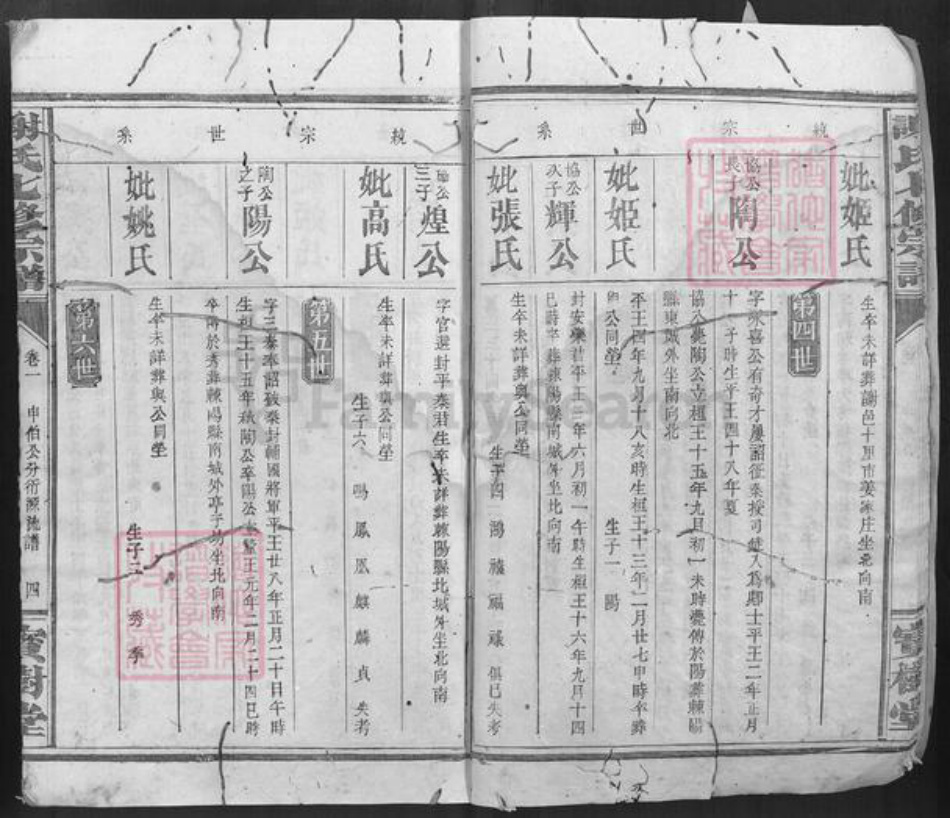 統宗世系
妣姬氏
生卒未詳葬謝邑十里市姜家庄坐北向南
第四世
協公長子陶公
字永喜公有奇才屢詔征秦授司
入為卿士平王二年正月
十子時生平王四十八年夏
協公薨陶公立桓王十五年九月初一未時薨傳於陽葬棘陽
縣東城外坐南向北
妣姬氏
平王四年九月十八亥時生桓王十三年二月廿七申時卒葬
與公同塋
生子一 陽
協公次子輝公
封安樂君平王三年六月初一午時生桓王十六年九月十四
巳時卒葬棘陽縣南城外坐北向南
妣張氏
生卒未詳葬與公同塋
生子四 鴻 禧 福 祿 俱已失考
協公三子煌公
字官選封平秦君生卒未詳葬棘陽縣北城外坐北向南
妣高氏
生卒未詳葬與公同塋
生子六 鳴 鳳 凰 麒 麟 貞 失考
第五世
陶公之子陽公
字三泰奉詔破秦封輔國將軍平王廿八年正月二十日午時
生桓王十五年秋陶公卒陽公立釐王元年二月二十四巳時
卒傳於秀葬棘陽縣南城外亭子坊坐北向南
妣姚氏
生卒未詳葬與公同塋
生子二 秀 季
第六世
統宗世系
謝氏七修宗譜
卷一
申伯公分衍源流譜
四
寶樹堂
謝氏七修宗譜
寶樹堂
FamilySearch